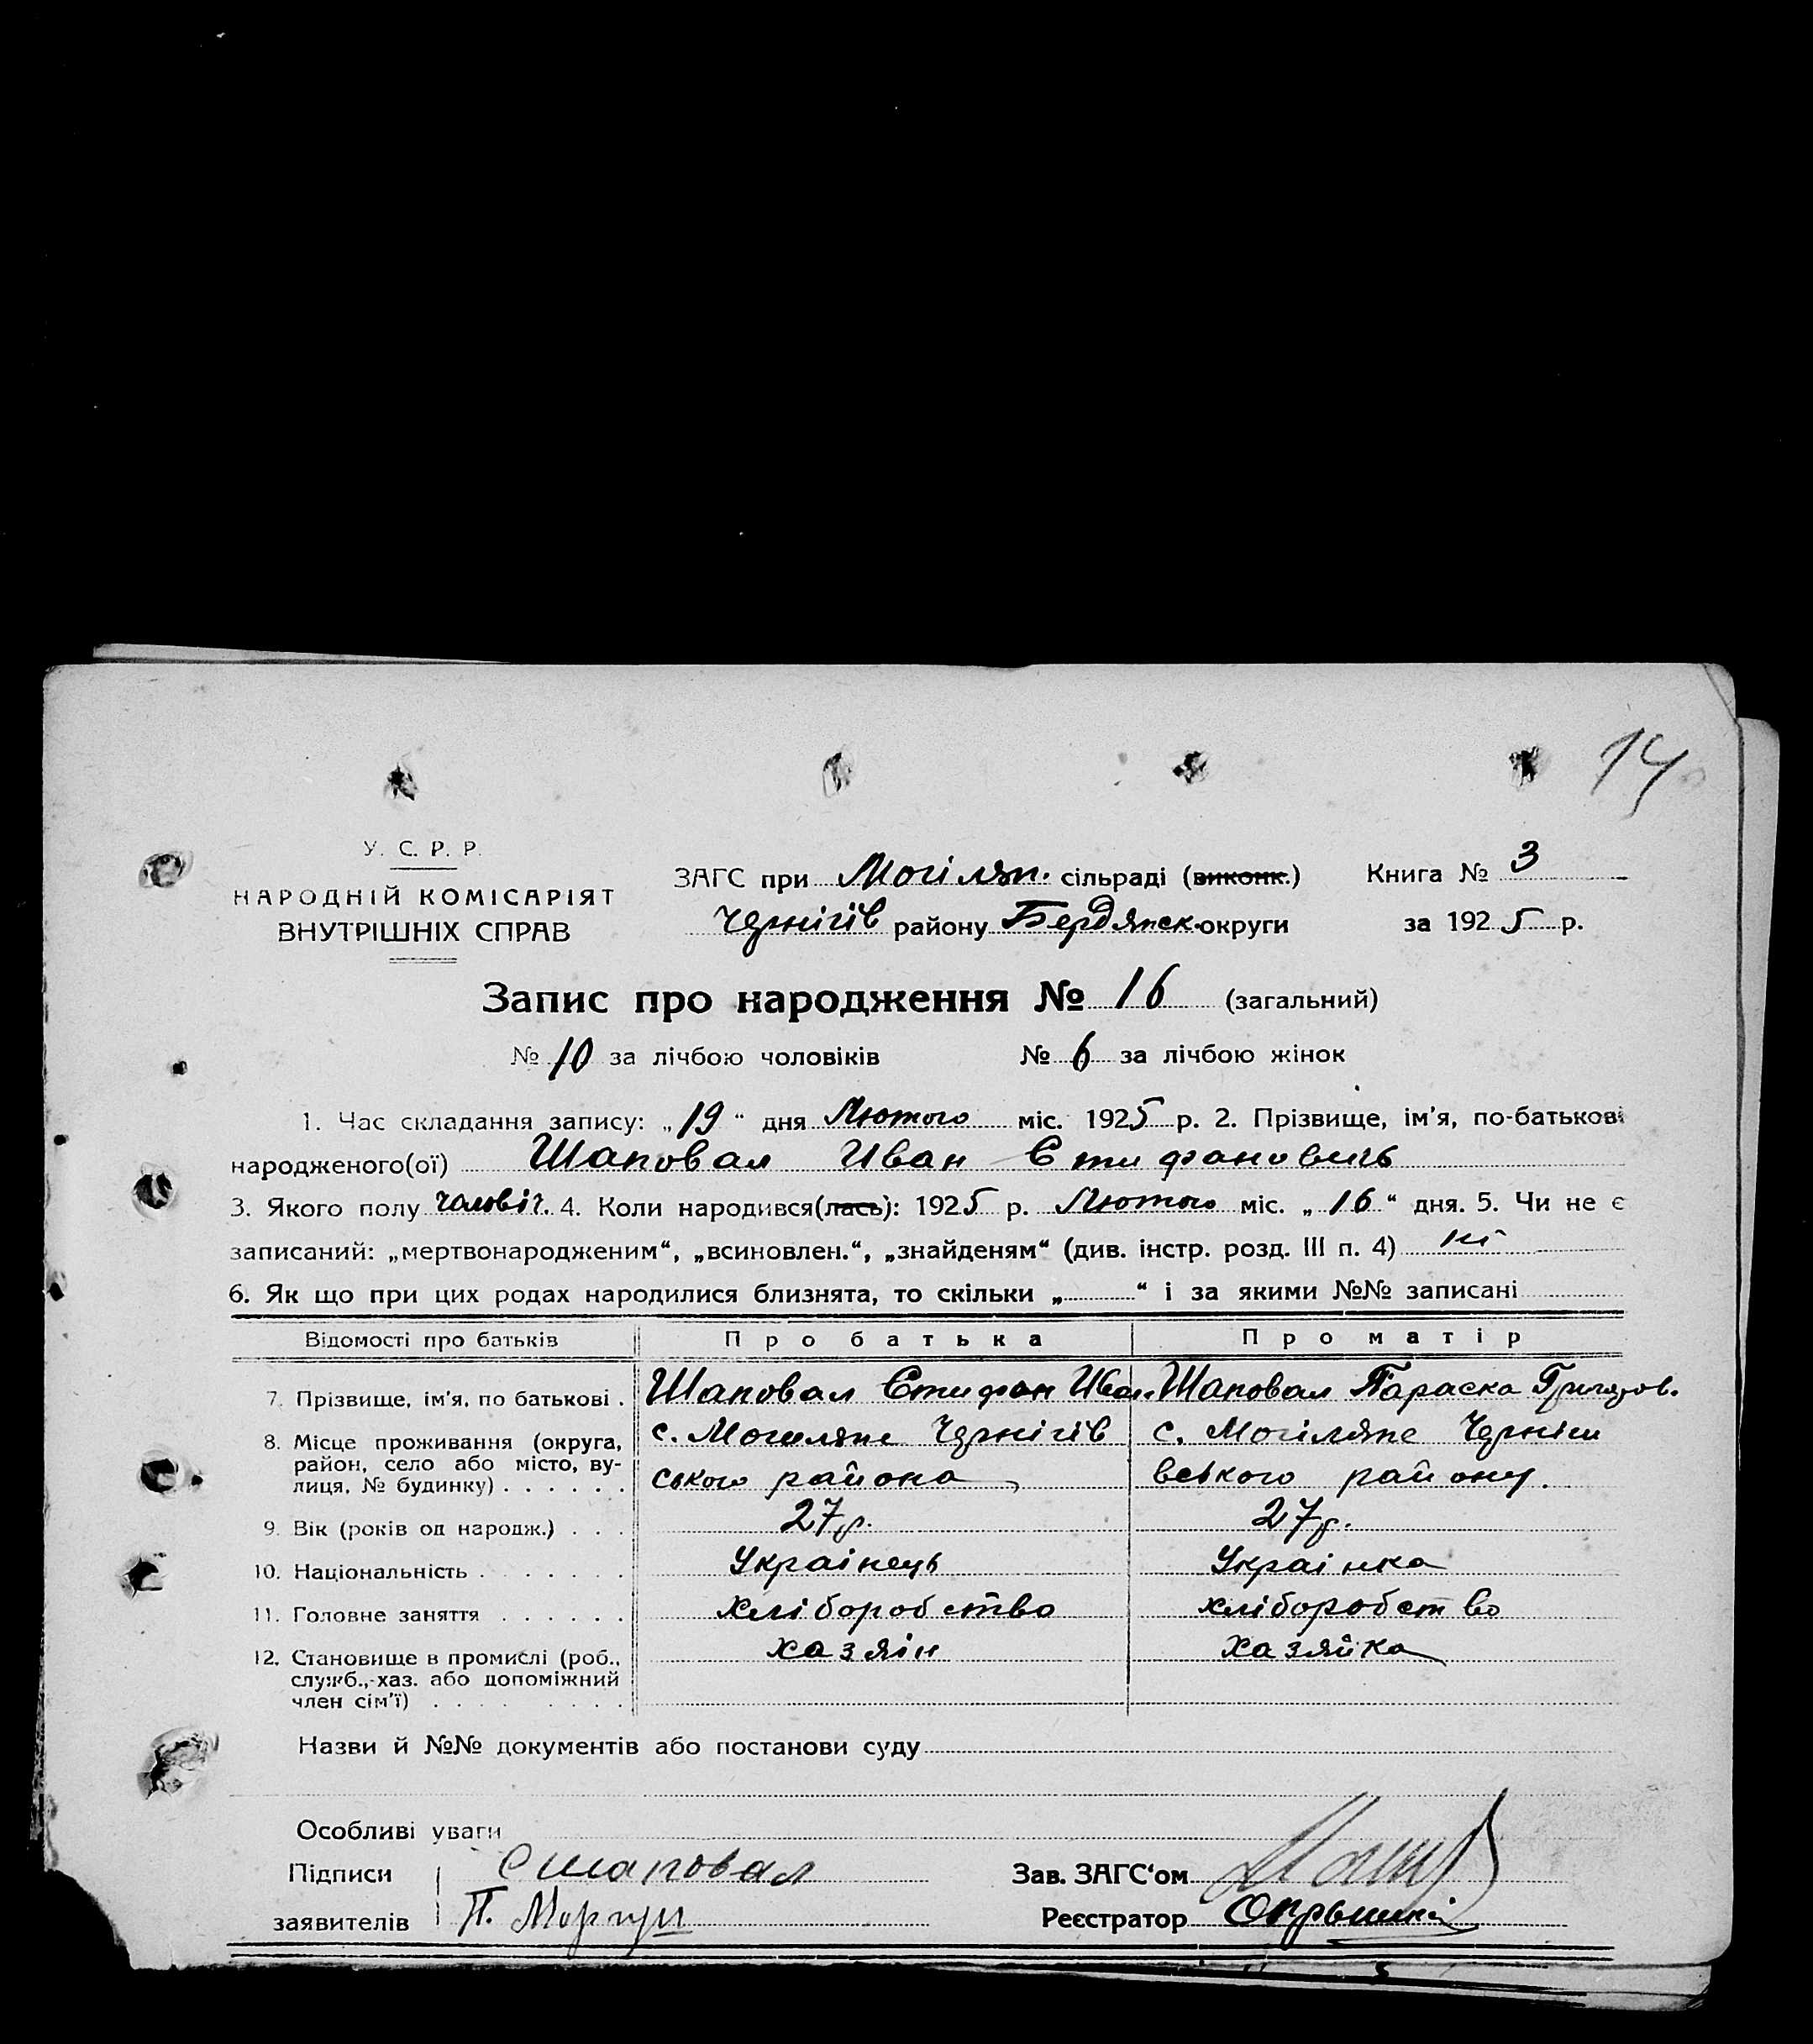 14
У. С. Р. Р.
НАРОДНІЙ КОМІСАРІЯТ
ВНУТРІШНІХ СПРАВ
ЗАГС при Могілян. сільраді (виконк.) Книга № 3
Чернігів району Бердянск. округи за 1925 р.
Запис про народження № 16 (загальний)
№ 10 за лічбою чоловіків № 6 за лічбою жінок
1. Час складання запису: „19“ дня Лютого міс. 1925 р. 2. Прізвище, ім'я, по-батькові
народженого(ої) Шаповал Иван Стифановичь
3. Якого полу чоловіч. 4. Коли народився(лась): 1925 р. Лютого міс. „16“ дня. 5. Чи не є
записаний: „мертвонародженим“, „всиновлен.“, „знайденям“ (див. інстр. розд. III п. 4) ні
6. Як що при цих родах народилися близнята, то скільки „ “ і за якими №№ записані
Відомості про батьків Про батька Про матір
7. Прізвище, ім'я, по батькові . Шаповал Стифан Иван. Шаповал Параска Григоров.
8. Місце проживання (округа, с. Могиляне Чернігів с. Могіляне Черніги
район, село або місто, ву-
лиця, № будинку) . . . . . . ського района вського району.
9. Вік (років од народж.) . . . 27 р. 27 р.
10. Національність . . . . . . . Українець Українка
11. Головне заняття . . . . . . хліборобство хліборобство
12. Становище в промислі (роб., хазяін хазяйка
служб., хаз. або допоміжний
член сім'ї) . . . . . . . .
Назви й №№ документів або постанови суду
Особливі уваги
Підписи С шаповал Зав. ЗАГС‘ом
заявителів П. Моргун Реєстратор